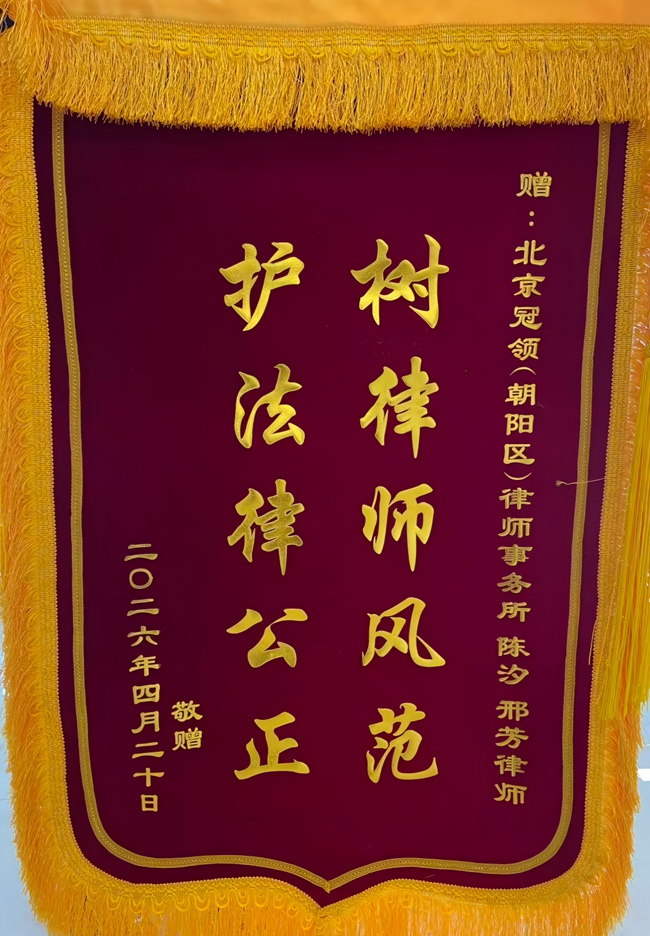 赠：北京冠领（朝阳区）律师事务所 陈汐 邢芳律师
树律师风范
护法律公正
敬赠
二〇二六年四月二十日